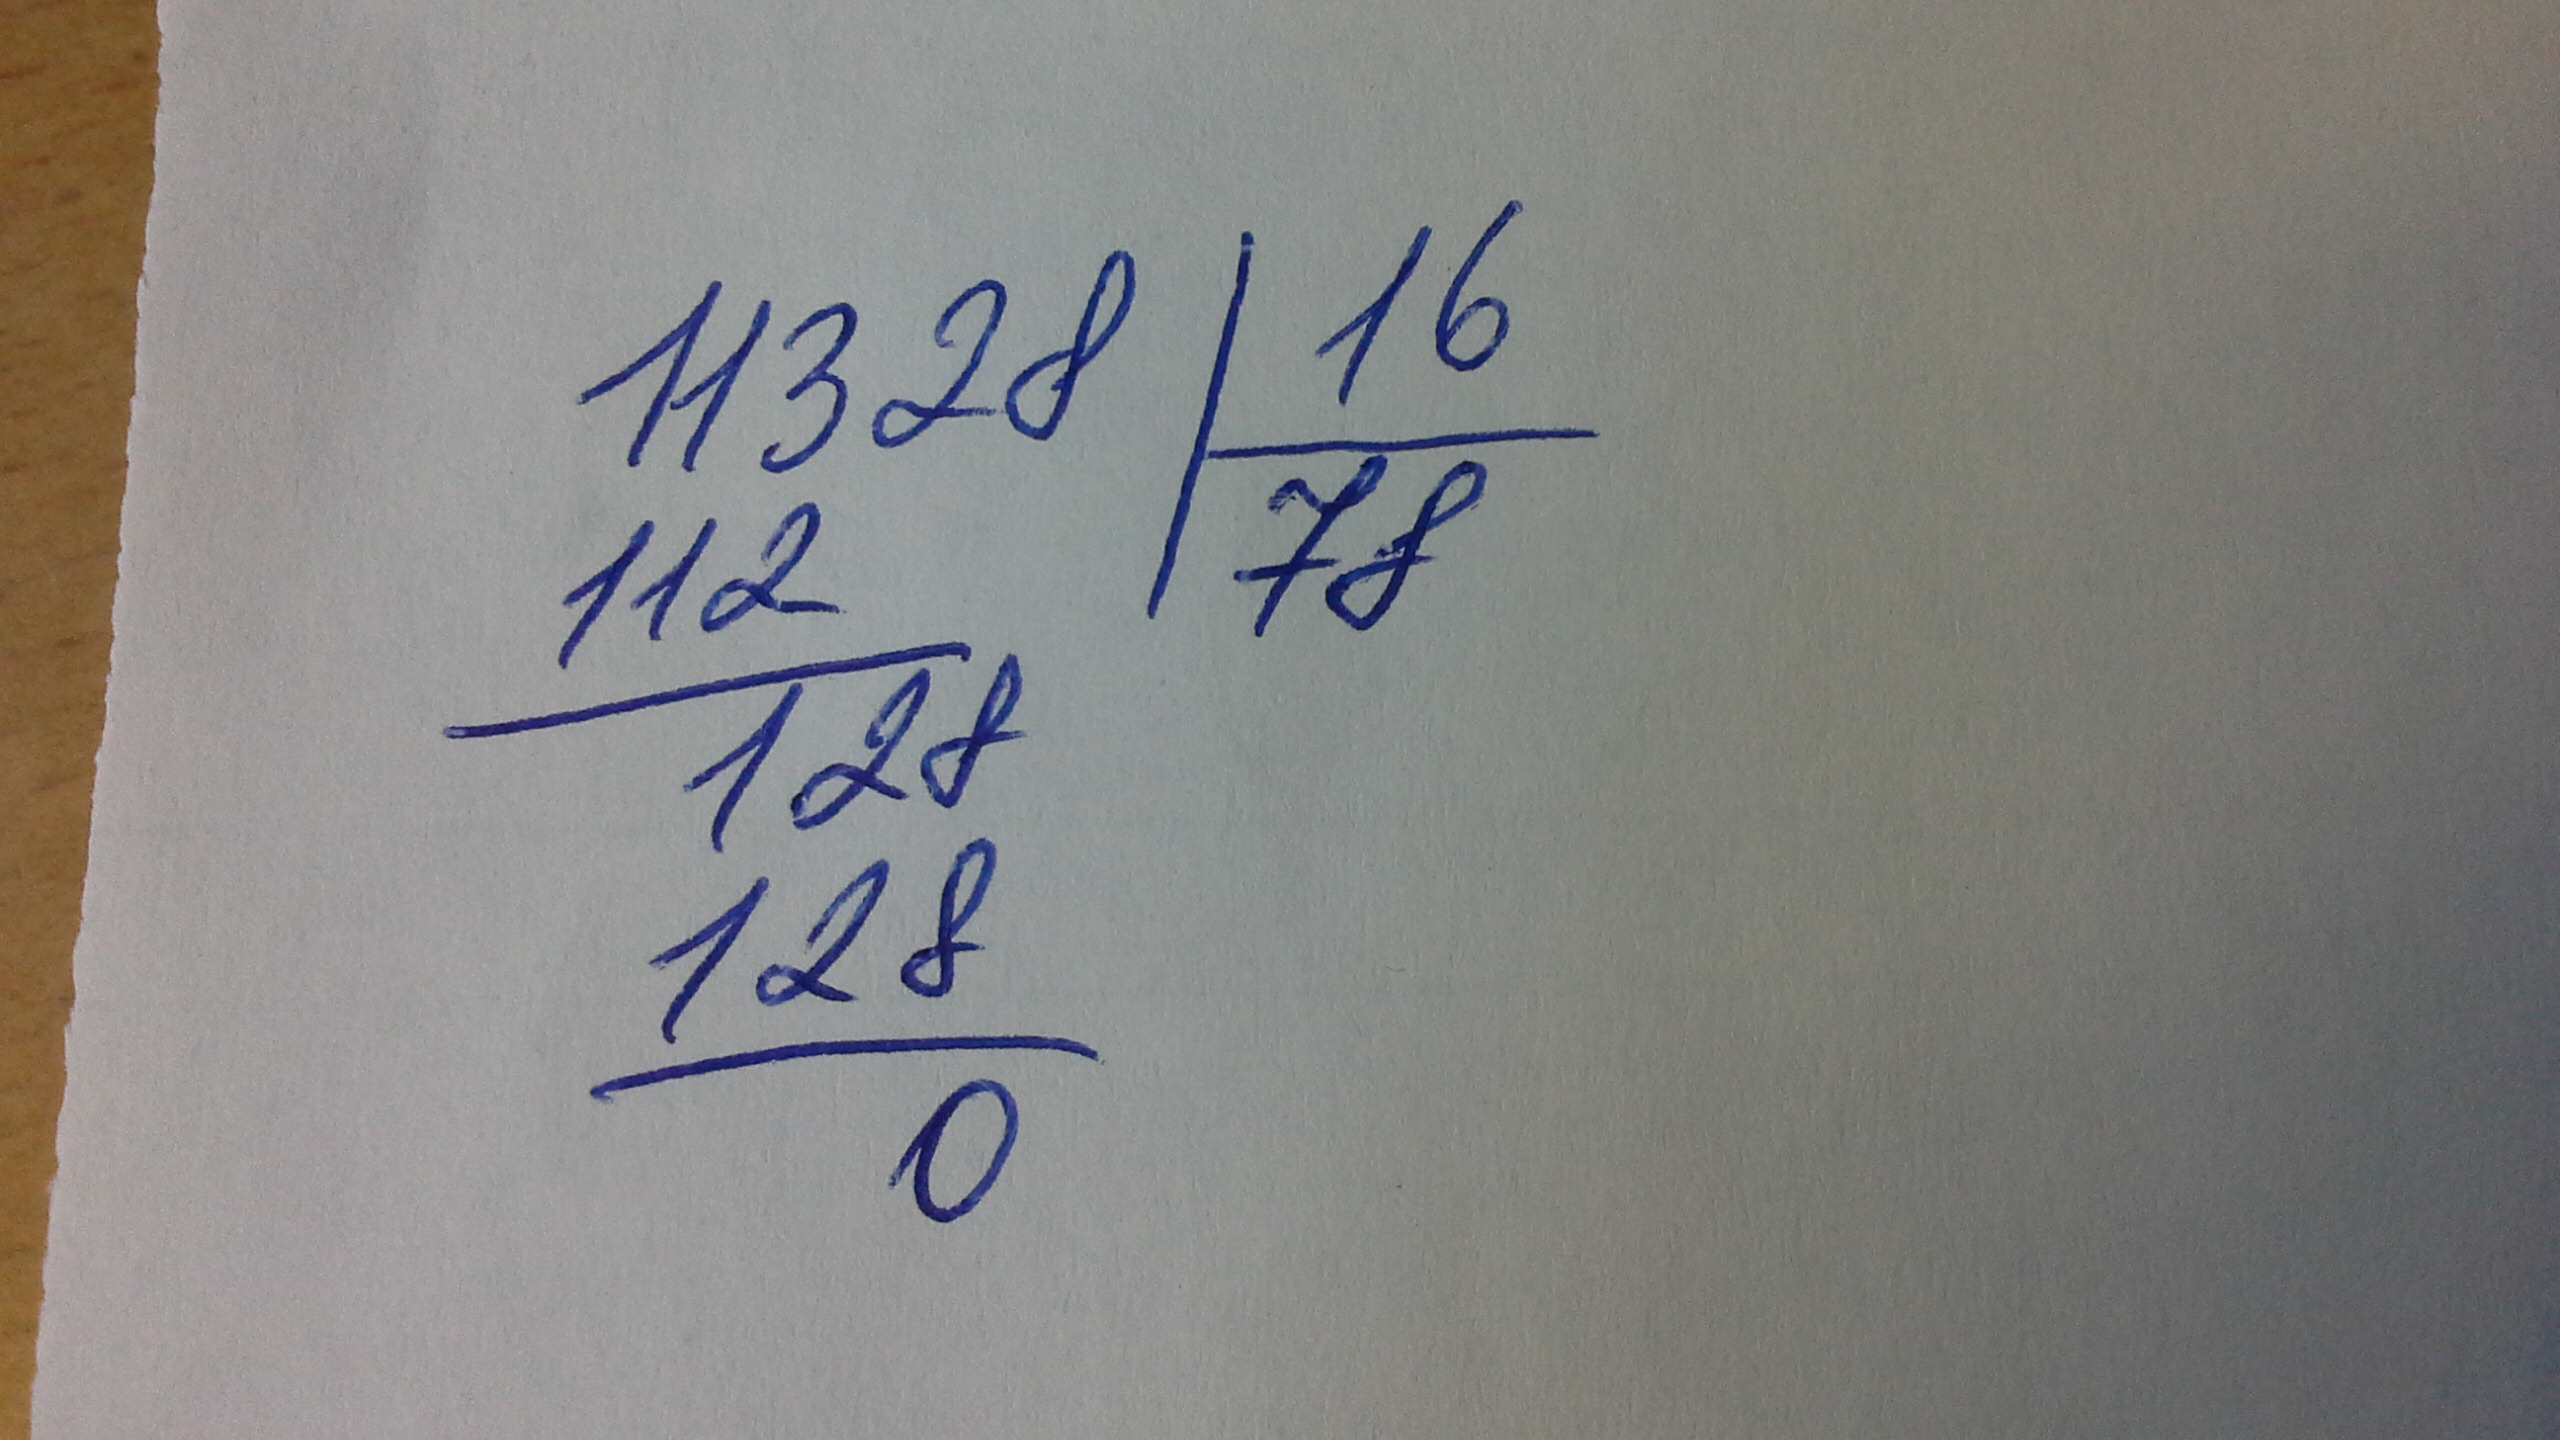 11328 | 16
112 78
128
128
0